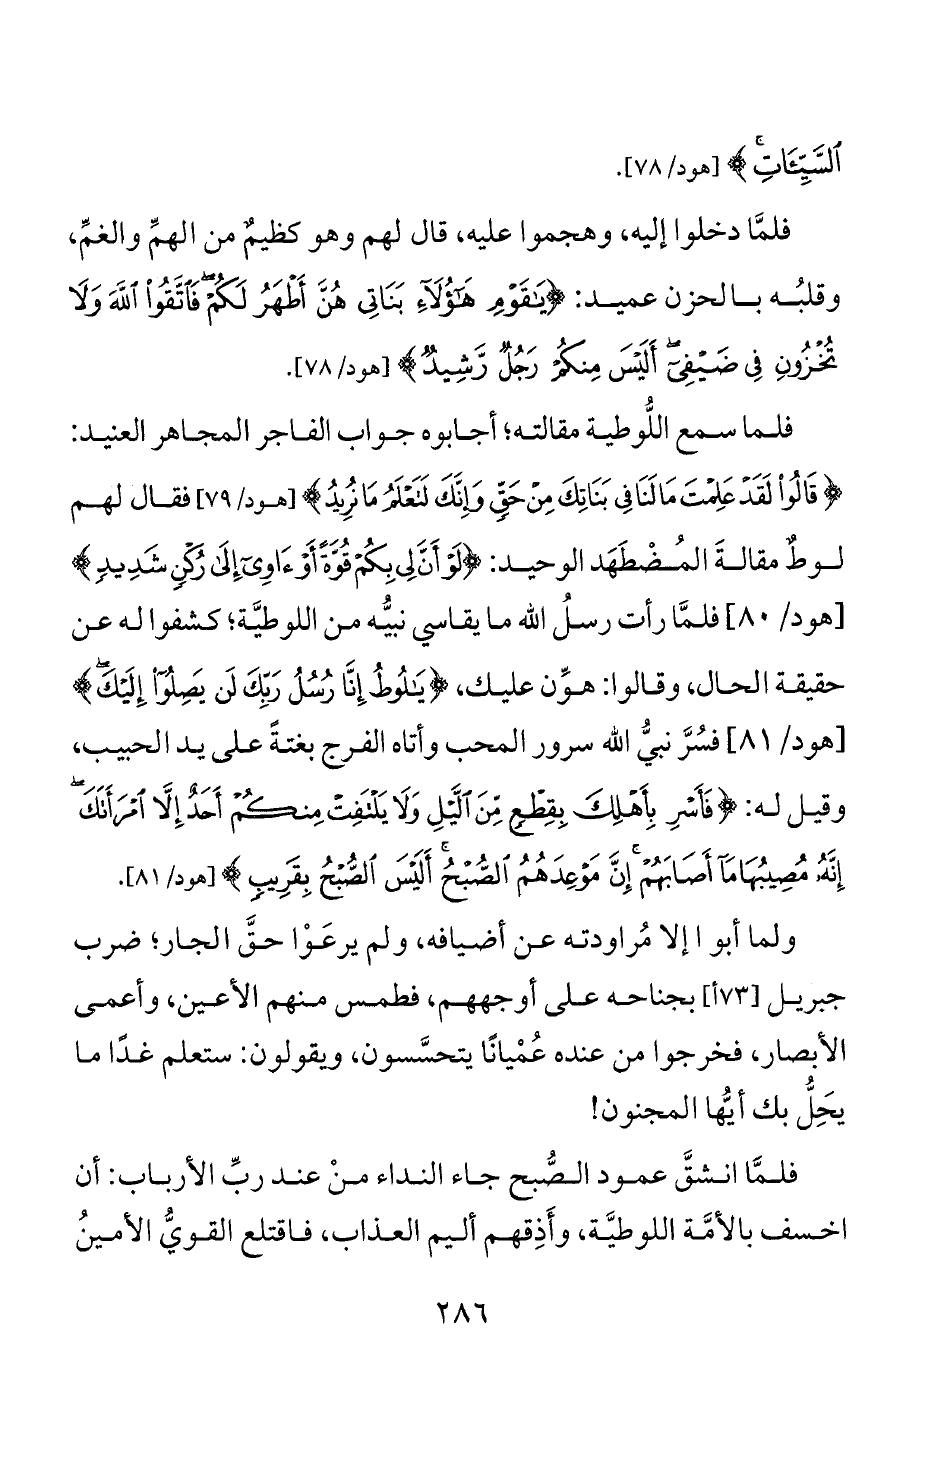 ٱلسَّيِّـَٔاتِۚ ﴾ [هود/ ٧٨].
فلمَّا دخلوا إليه، وهجموا عليه، قال لهم وهو كظيمٌ من الهمِّ والغمِّ،
وقلبُه بالحزن عميد: ﴿يَٰقَوْمِ هَٰٓؤُلَآءِ بَنَاتِى هُنَّ أَطْهَرُ لَكُمْۖ فَٱتَّقُوا۟ ٱللَّهَ وَلَا
تُخْزُونِ فِى ضَيْفِىٓۖ أَلَيْسَ مِنكُمْ رَجُلٌ رَّشِيدٌ﴾ [هود/ ٧٨].
فلما سمع اللُّوطية مقالته؛ أجابوه جواب الفاجر المجاهر العنيد:
﴿ قَالُوا۟ لَقَدْ عَلِمْتَ مَا لَنَا فِى بَنَاتِكَ مِنْ حَقٍّ وَإِنَّكَ لَتَعْلَمُ مَا نُرِيدُ﴾ [هود/ ٧٩] فقال لهم
لوطٌ مقالةَ المُضْطَهَد الوحيد: ﴿لَوْ أَنَّ لِى بِكُمْ قُوَّةً أَوْ ءَاوِىٓ إِلَىٰ رُكْنٍ شَدِيدٍ﴾
[هود/ ٨٠] فلمَّا رأت رسلُ الله ما يقاسي نبيُّه من اللوطيَّة؛ كشفوا له عن
حقيقة الحال، وقالوا: هوِّن عليك، ﴿يَٰلُوطُ إِنَّا رُسُلُ رَبِّكَ لَن يَصِلُوٓا۟ إِلَيْكَۖ﴾
[هود/ ٨١] فسُرَّ نبيُّ الله سرور المحب وأتاه الفرج بغتةً على يد الحبيب،
وقيل له: ﴿فَأَسْرِ بِأَهْلِكَ بِقِطْعٍ مِّنَ ٱلَّيْلِ وَلَا يَلْتَفِتْ مِنكُمْ أَحَدٌ إِلَّا ٱمْرَأَتَكَۖ
إِنَّهُۥ مُصِيبُهَا مَآ أَصَابَهُمْۚ إِنَّ مَوْعِدَهُمُ ٱلصُّبْحُۚ أَلَيْسَ ٱلصُّبْحُ بِقَرِيبٍ﴾ [هود/ ٨١].
ولما أبوا إلا مُراودته عن أضيافه، ولم يرعَوْا حقَّ الجار؛ ضرب
جبريل [٧٣أ] بجناحه على أوجههم، فطمس منهم الأعين، وأعمى
الأبصار، فخرجوا من عنده عُمْيانًا يتحسَّسون، ويقولون: ستعلم غدًا ما
يحَِلُّ بك أيُّها المجنون!
فلمَّا انشقَّ عمود الصُّبح جاء النداء منْ عند ربِّ الأرباب: أن
اخسف بالأمَّة اللوطيَّة، وأَذِقهم أليم العذاب، فاقتلع القويُّ الأمينُ
٢٨٦